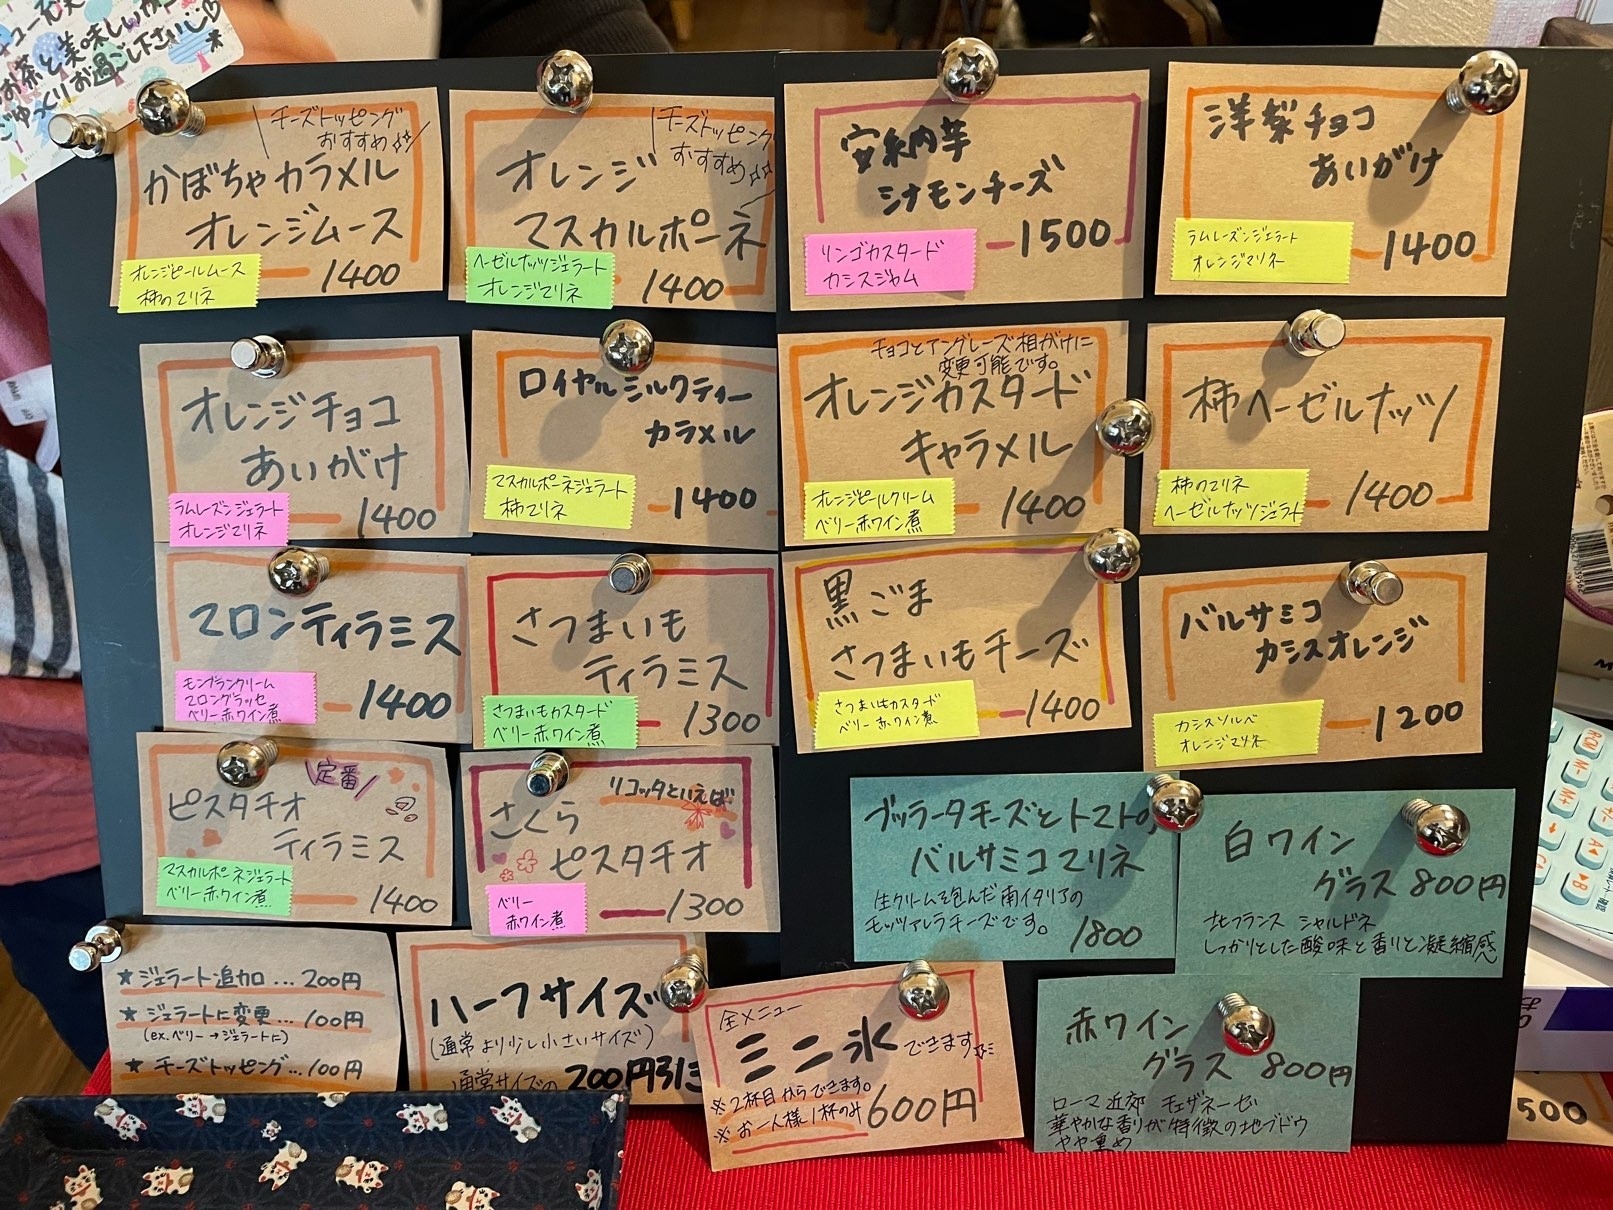 お茶と美味しいか
ごゆっくりお過ごし下さい♡
チーズトッピング
おすすめ
かぼちゃカラメル
オレンジムース
オレンジピールムース
柿のマリネ
1400
チーズトッピング
おすすめ
オレンジ
マスカルポーネ
ヘーゼルナッツジェラート
オレンジマリネ
1400
安納芋
シナモンチーズ
リンゴカスタード
カシスジャム
1500
洋梨チョコ
あいがけ
ラムレーズンジェラート
オレンジマリネ
1400
オレンジチョコ
あいがけ
ラムレーズンジェラート
オレンジマリネ
1400
ロイヤルミルクティー
カラメル
マスカルポーネジェラート
柿マリネ
1400
チョコとアングレーズ相がけに
変更可能です。
オレンジカスタード
キャラメル
オレンジピールクリーム
ベリー赤ワイン煮
1400
柿ヘーゼルナッツ
柿のマリネ
ヘーゼルナッツジェラート
1400
マロンティラミス
モンブランクリーム
マロングラッセ
ベリー赤ワイン煮
1400
さつまいも
ティラミス
さつまいもカスタード
ベリー赤ワイン煮
1300
黒ごま
さつまいもチーズ
さつまいもカスタード
ベリー赤ワイン煮
1400
バルサミコ
カシスオレンジ
カシスソルベ
オレンジマリネ
1200
定番
ピスタチオ
ティラミス
マスカルポーネジェラート
ベリー赤ワイン煮
1400
リコッタといえば
さくら
ピスタチオ
ベリー
赤ワイン煮
1300
ブッラータチーズとトマトの
バルサミコマリネ
生クリームを包んだ南イタリアの
モッツァレラチーズです。
1800
白ワイン
グラス 800円
地フランス シャルドネ
しっかりとした酸味と香りと凝縮感
★ジェラート追加…200円
★ジェラートに変更…100円
(ex.ベリー→ジェラートに)
★チーズトッピング…100円
ハーフサイズ
(通常より少し小さいサイズ)
通常サイズの 200円引き
全メニュー
ミニ氷できます
※2杯目からできます。
※お一人様1杯のみ
600円
赤ワイン
グラス 800円
ローマ近郊 チェザネーゼ
華やかな香りが特徴の地ブドウ
やや重め
500